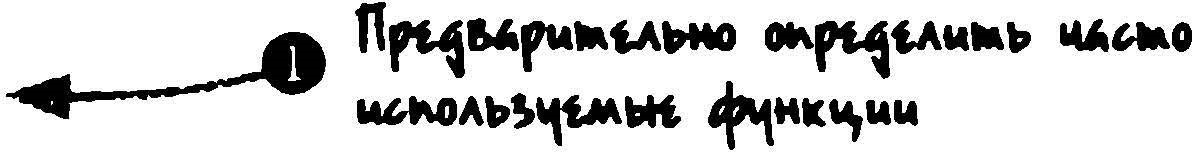 1 Предварительно определить часто
используемые функции